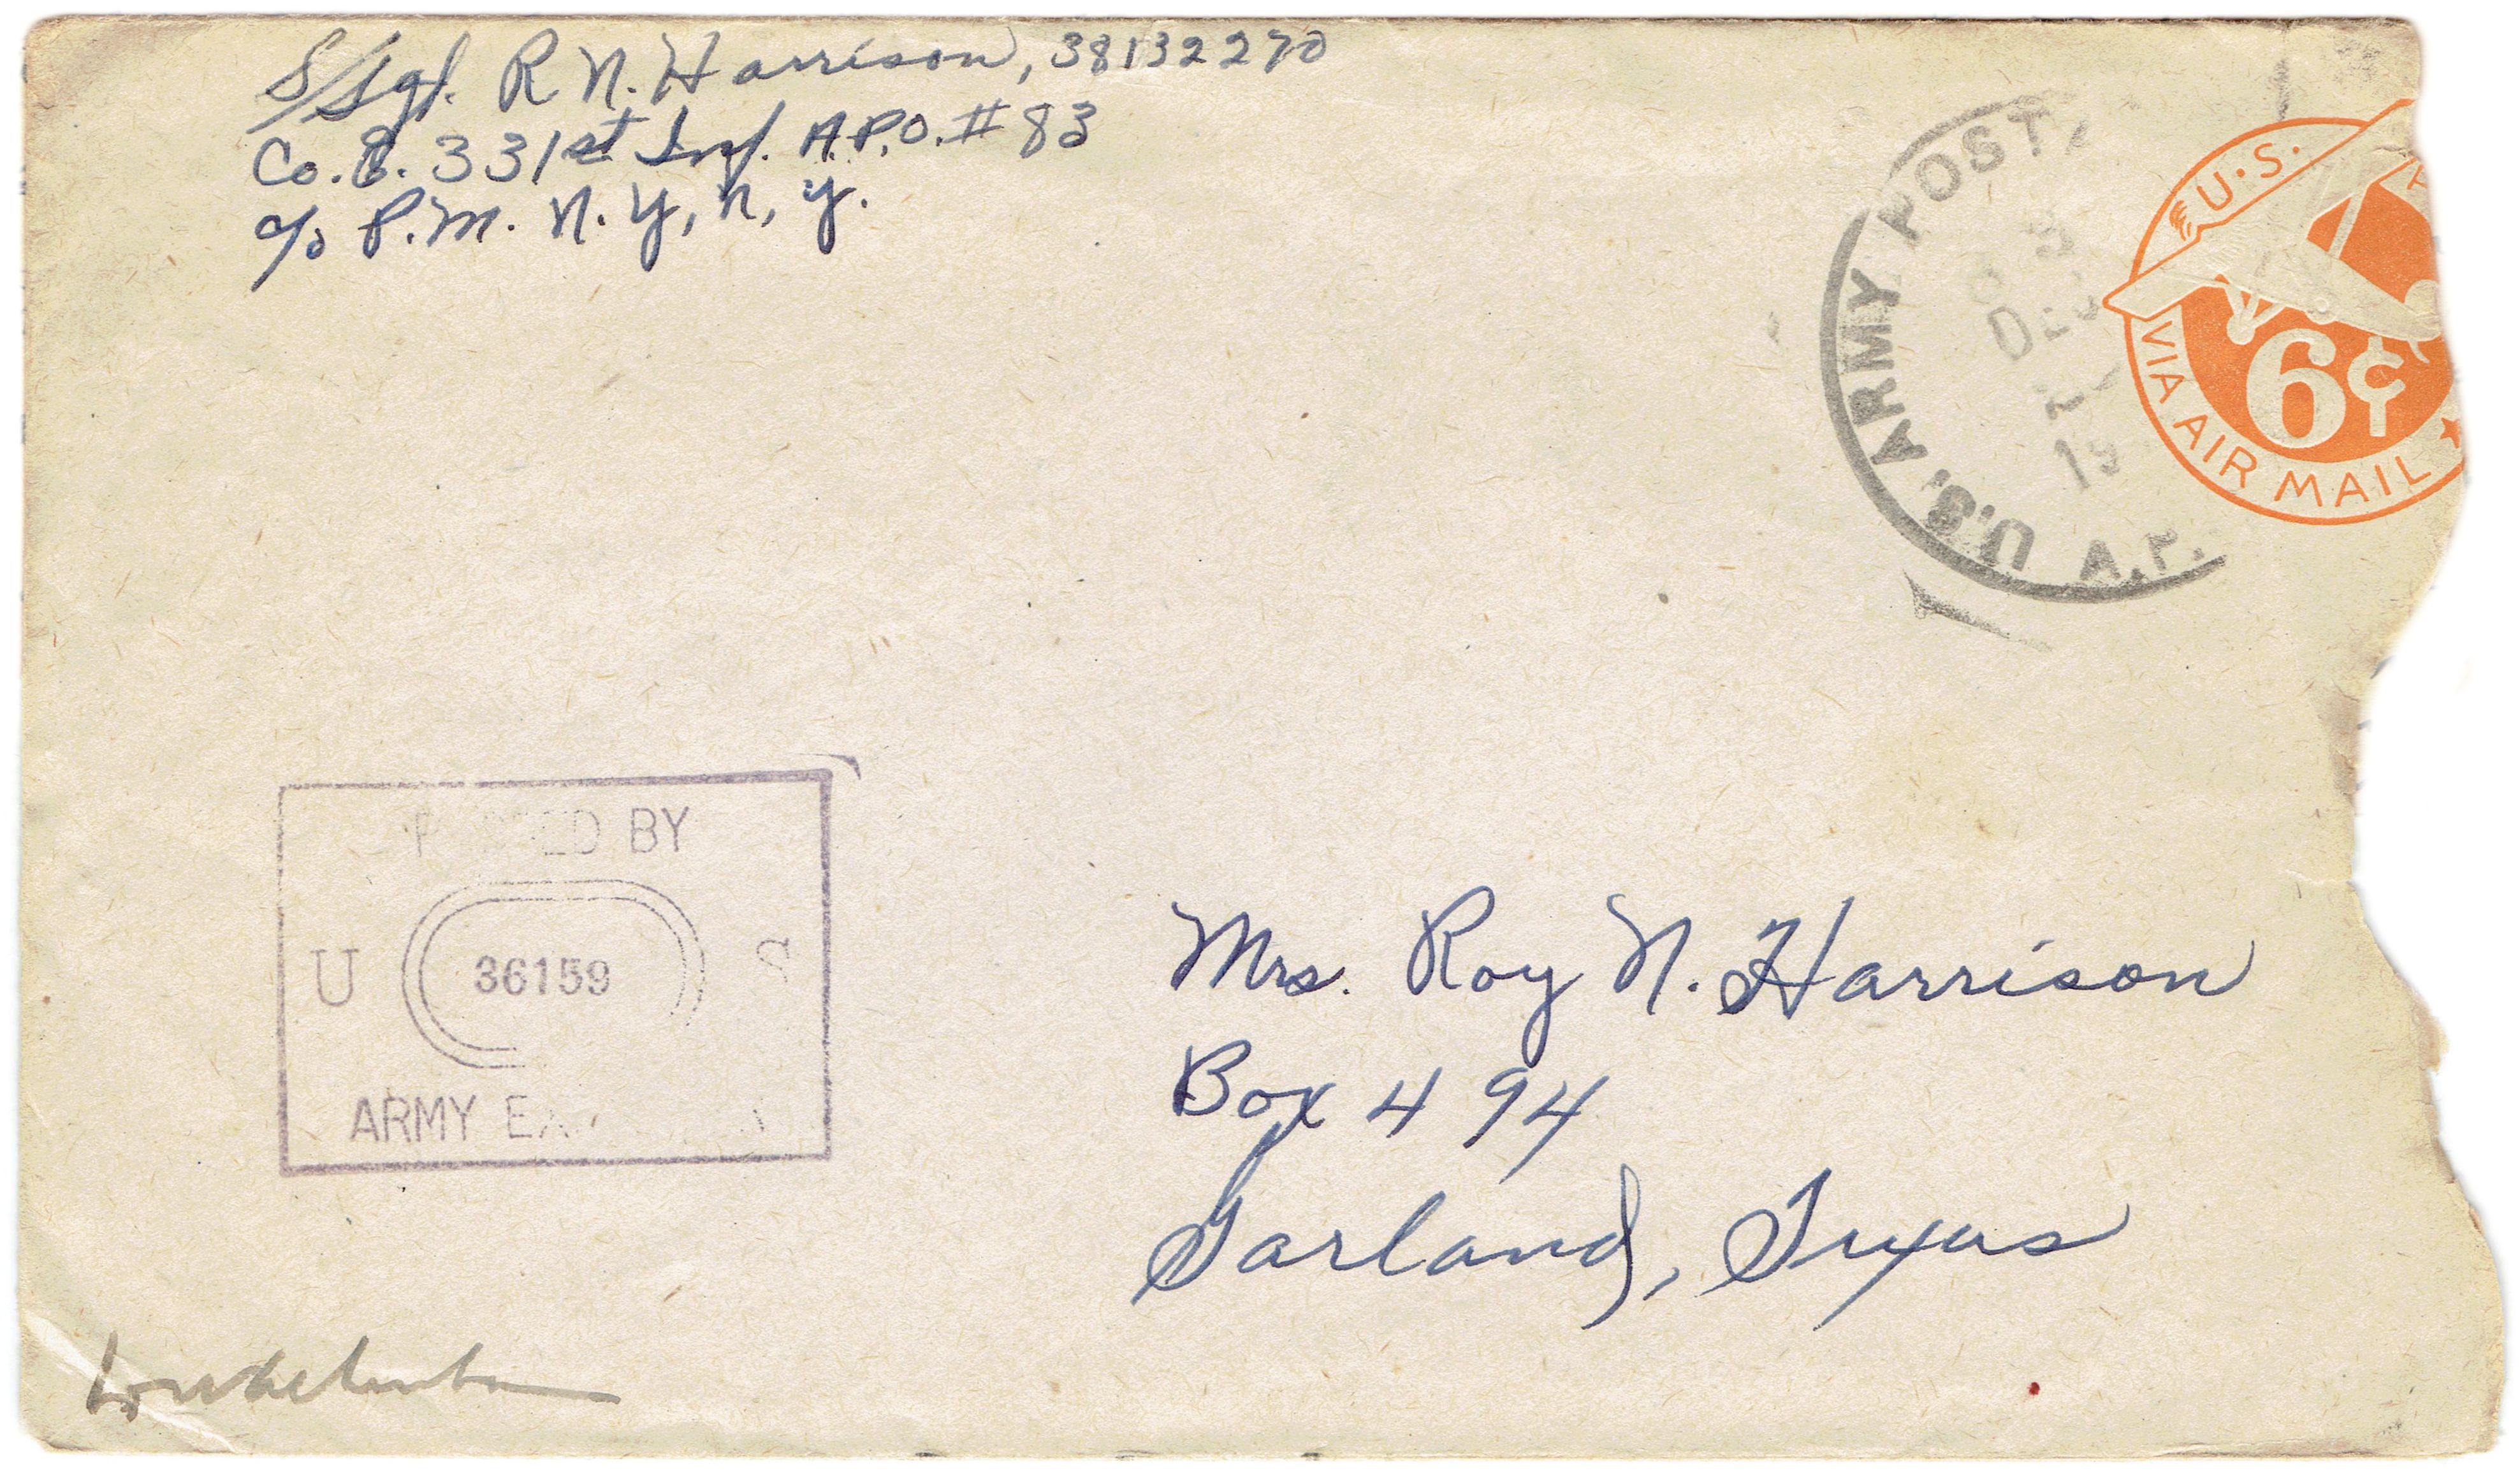 S/Sgt. R N. Harrison, 38132270
Co. B. 331st Inf. A.P.O. #83
c/o P.M. N.Y, N, Y.
U.S. ARMY POST
DEC
19
A.P.
U.S.
6¢
VIA AIR MAIL
BY
U 36159 S
ARMY
Mrs. Roy N. Harrison
Box 494
Garland, Texas